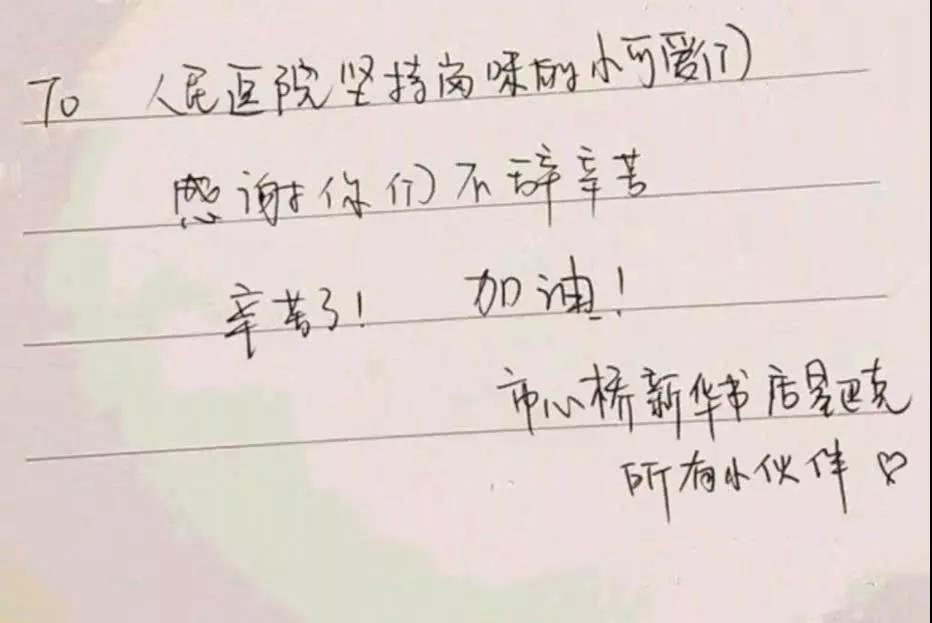 To 人民医院坚持岗味的小可爱们
感谢你们不辞辛苦
辛苦了! 加油!
市心桥新华书店星巴克
所有小伙伴 ♡